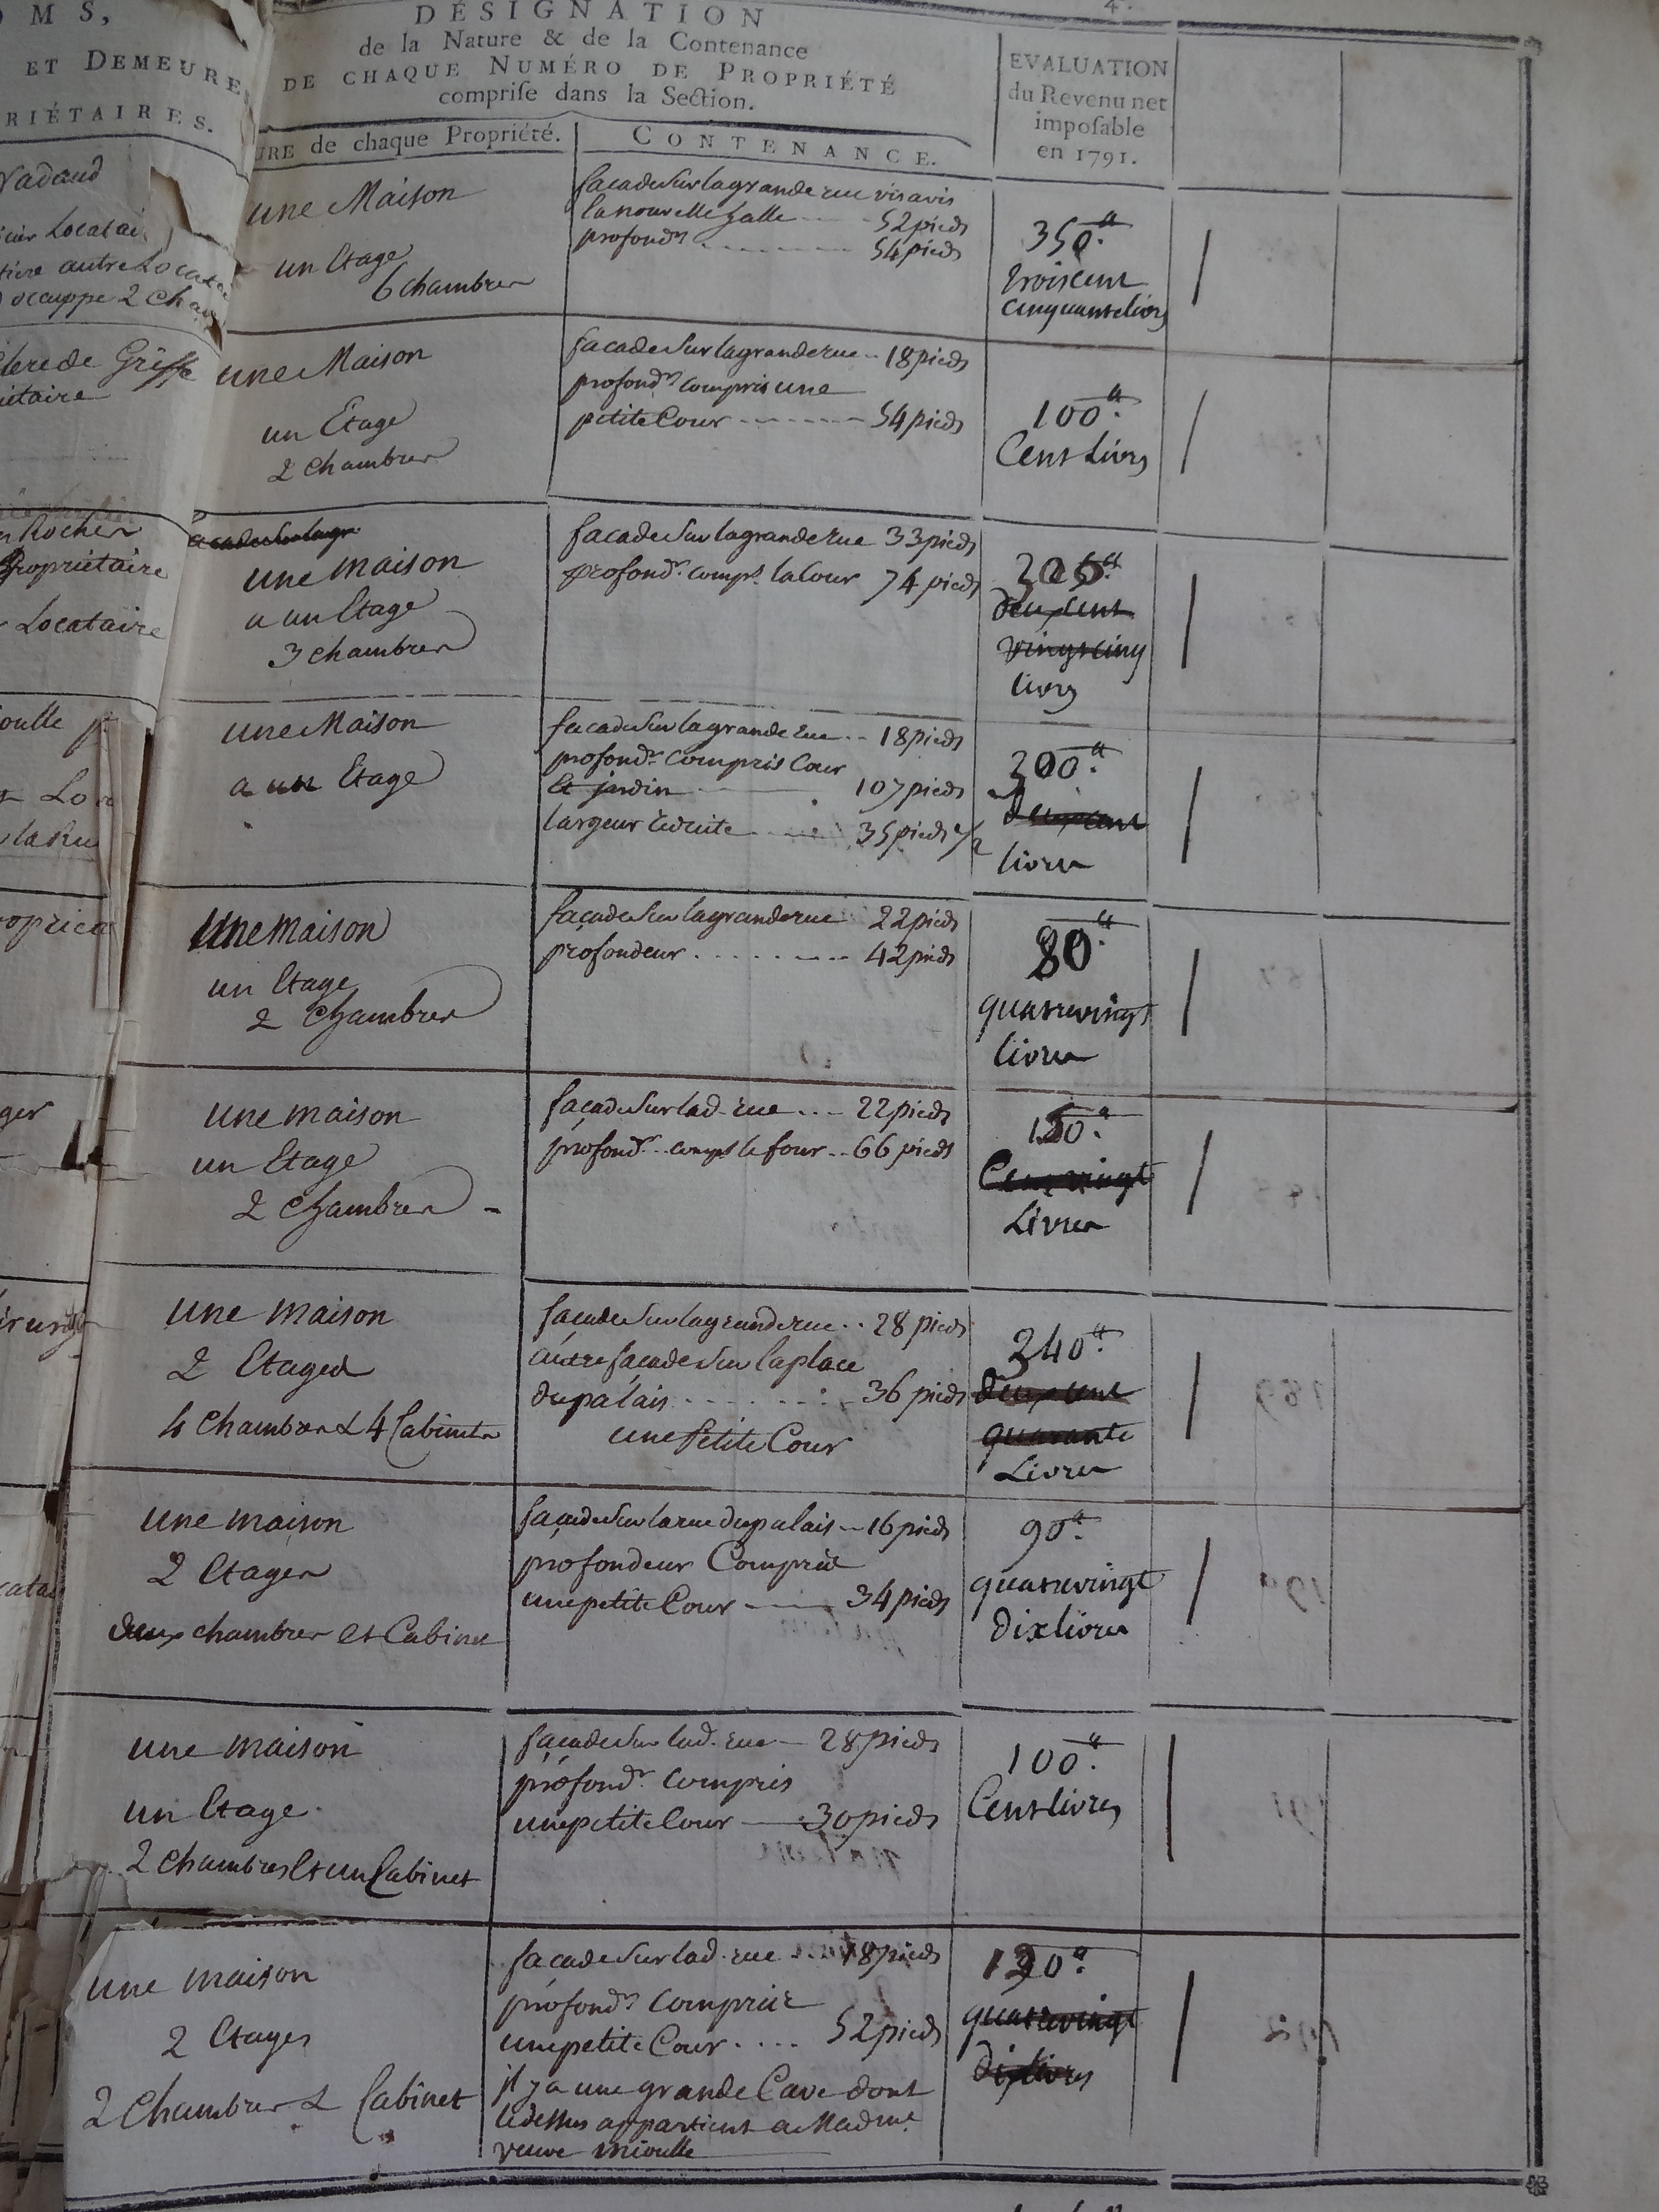 4.
M S,
ET DEMEURES
RIÉTAIRES.
DÉSIGNATION
de la Nature & de la Contenance
DE CHAQUE NUMÉRO DE PROPRIÉTÉ
comprise dans la Section.
URE de chaque Propriété.
CONTENANCE.
EVALUATION
du Revenu net
imposable
en 1791.
Nadaud
Locatai
tiere autre Locatai
occuppe 2 Cham
une Maison
un Etage
6 chambres
facade sur la grande rue vis avis
la nouvelle halle 52 pieds
profondr 54 pieds
350tt.
trois cent
cinquante livres
Clerc de Greffe
iétaire
une Maison
un Etage
2 chambres
facade sur la grande rue 18 pieds
profondr compris une
petite Cour 54 pieds
100tt.
Cent Livres
Rocher
propriétaire
Locataire
facade sur la gr
une maison
a un Etage
3 chambres
facade sur la grande rue 33 pieds
profondr. comps. la Cour 74 pieds
deux cent
vingt cinq
livres
oulle
Lo
la Rue
une Maison
a un Etage
facade sur la grande rue 18 pieds
profondr. compris Cour
et jardin 107 pieds
largeur réduite 35 pieds 1/2
deux cent
livres
oprieta
une maison
un Etage
2 chambres
façade sur la grande rue 22 pieds
profondeur 42 pieds
80tt.
quatrevingt
livres
ger
une maison
un Etage
2 chambres
façade sur lad. rue 22 pieds
profondr. comps le four 66 pieds
Cent vingt
Livres
irurgi
une maison
2 Etages
4 chambres & 4 Cabinets
facade sur la grande rue 28 pieds
autre façade sur la place
du palais 36 pieds
une petite Cour
240tt.
deux cent
quarante
Livres
cata
une maison
2 Etages
deux chambres et Cabinet
façade sur la rue du palais 16 pieds
profondeur Compris
une petite Cour 34 pieds
90tt.
quatrevingt
dix livres
une maison
un Etage
2 chambres et un Cabinet
façade sur lad. rue 28 pieds
profondr. compris
une petite Cour 30 pieds
100tt.
Cent livres
une maison
2 Etages
2 Chambres & Cabinet
façade sur lad. rue 18 pieds
profondr. compris
une petite Cour 52 pieds
il y a une grande Cave dont
le dessus appartient a Madme.
veuve mioulle
120tt.
quatrevingt
dix livres